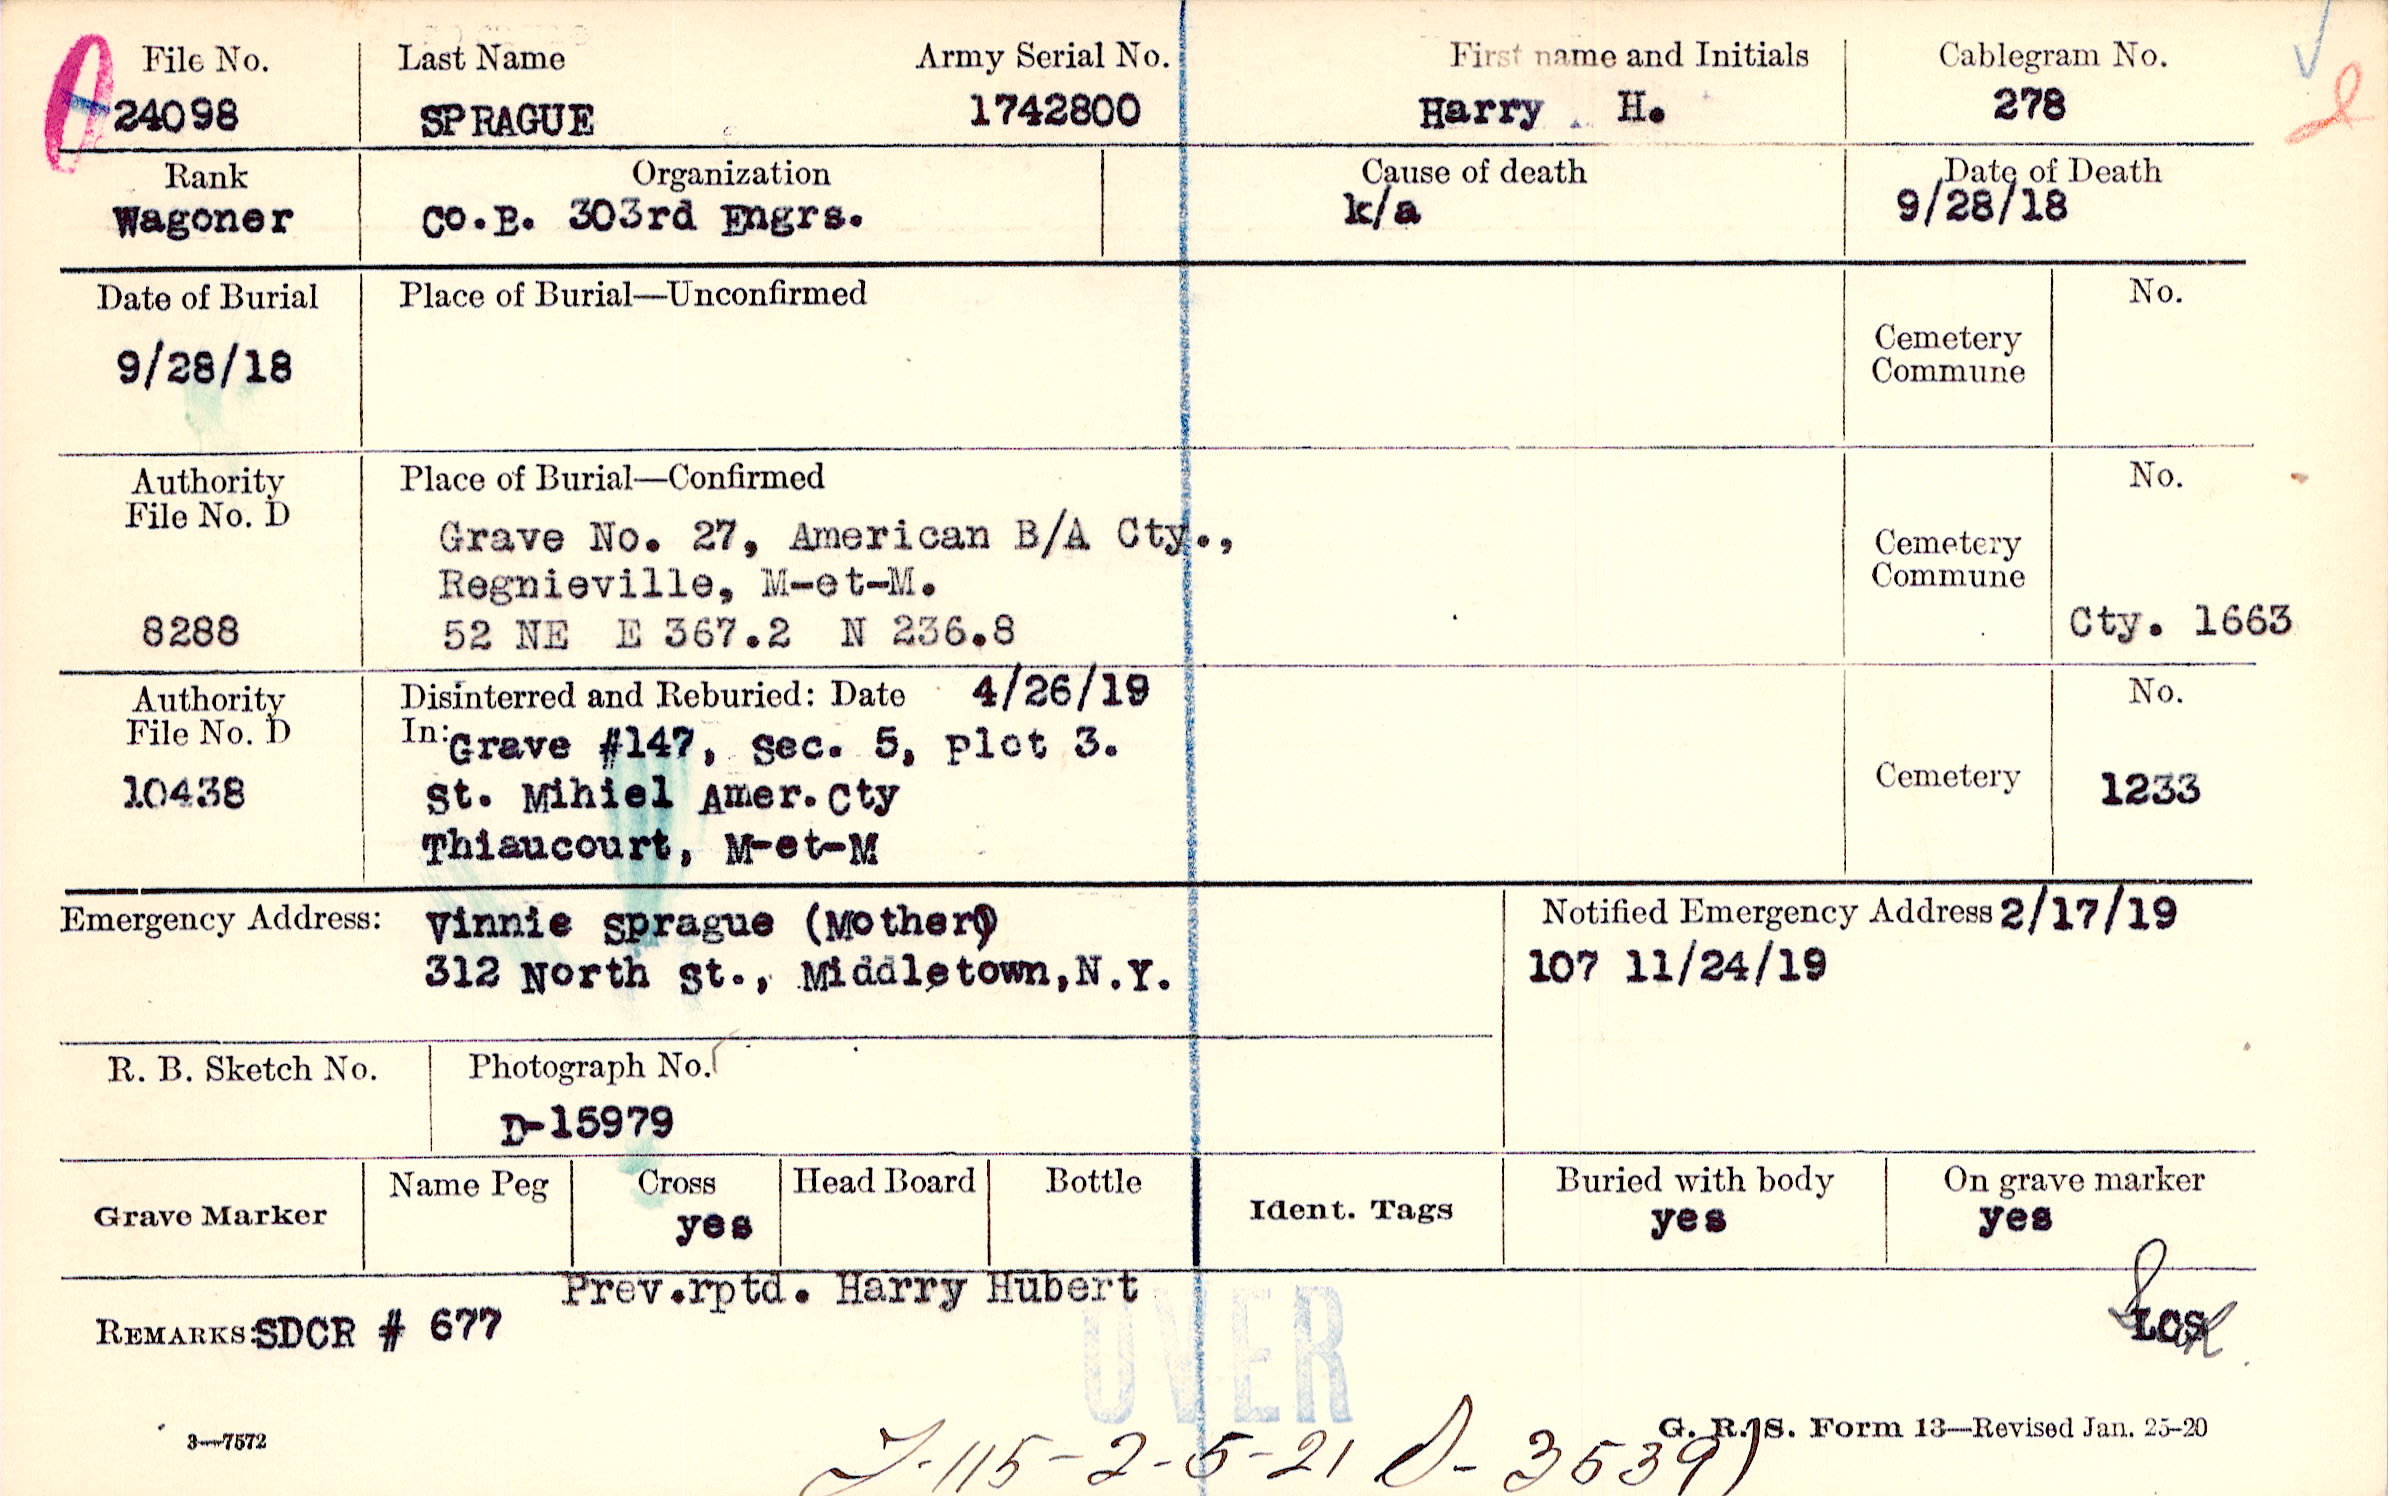 File No. Last Name Army Serial No. First name and Initials Cablegram No.
24098 SPRAGUE 1742800 Harry H. 278
Rank Organization Cause of death Date of Death
Wagoner Co.B. 303rd Engrs. k/a 9/28/18
Date of Burial Place of Burial—Unconfirmed No.
9/28/18 Cemetery
Commune
Authority Place of Burial—Confirmed No.
File No. D
Grave No. 27, American B/A Cty., Cemetery
Regnieville, M-et-M. Commune
8288 52 NE E 367.2 N 236.8 Cty. 1663
Authority Disinterred and Reburied: Date 4/26/19 No.
File No. D In: Grave #147, Sec. 5, Plot 3.
10438 St. Mihiel Amer. Cty Cemetery 1233
Thiaucourt, M-et-M
Emergency Address: Vinnie Sprague (Mother) Notified Emergency Address 2/17/19
312 North St., Middletown, N.Y. 107 11/24/19
R. B. Sketch No. Photograph No.
D-15979
Grave Marker Name Peg Cross Head Board Bottle Ident. Tags Buried with body On grave marker
yes yes yes
Prev.rptd. Harry Hubert
REMARKS: SDCR # 677 LCS
OVER
3—7572 G. R. S. Form 13—Revised Jan. 25-20
115-2-5-21 D- 3539